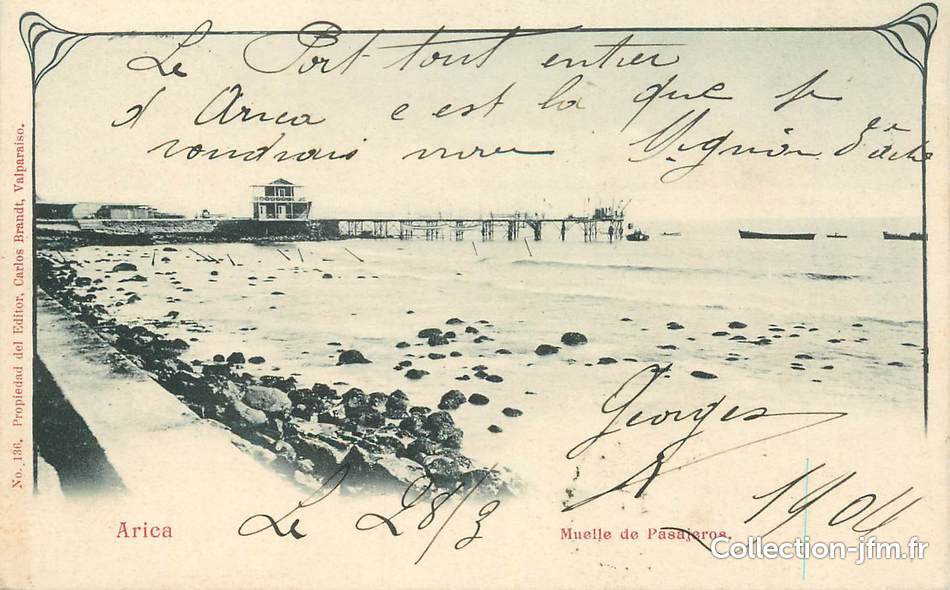 Le Port tout entier
d Arica c est là que je
voudrais vivre
No. 136. Propiedad del Editor, Carlos Brandt, Valparaiso.
Georges
Arica
Le 28/3
Muelle de Pasajeros.
1904
Collection-jfm.fr